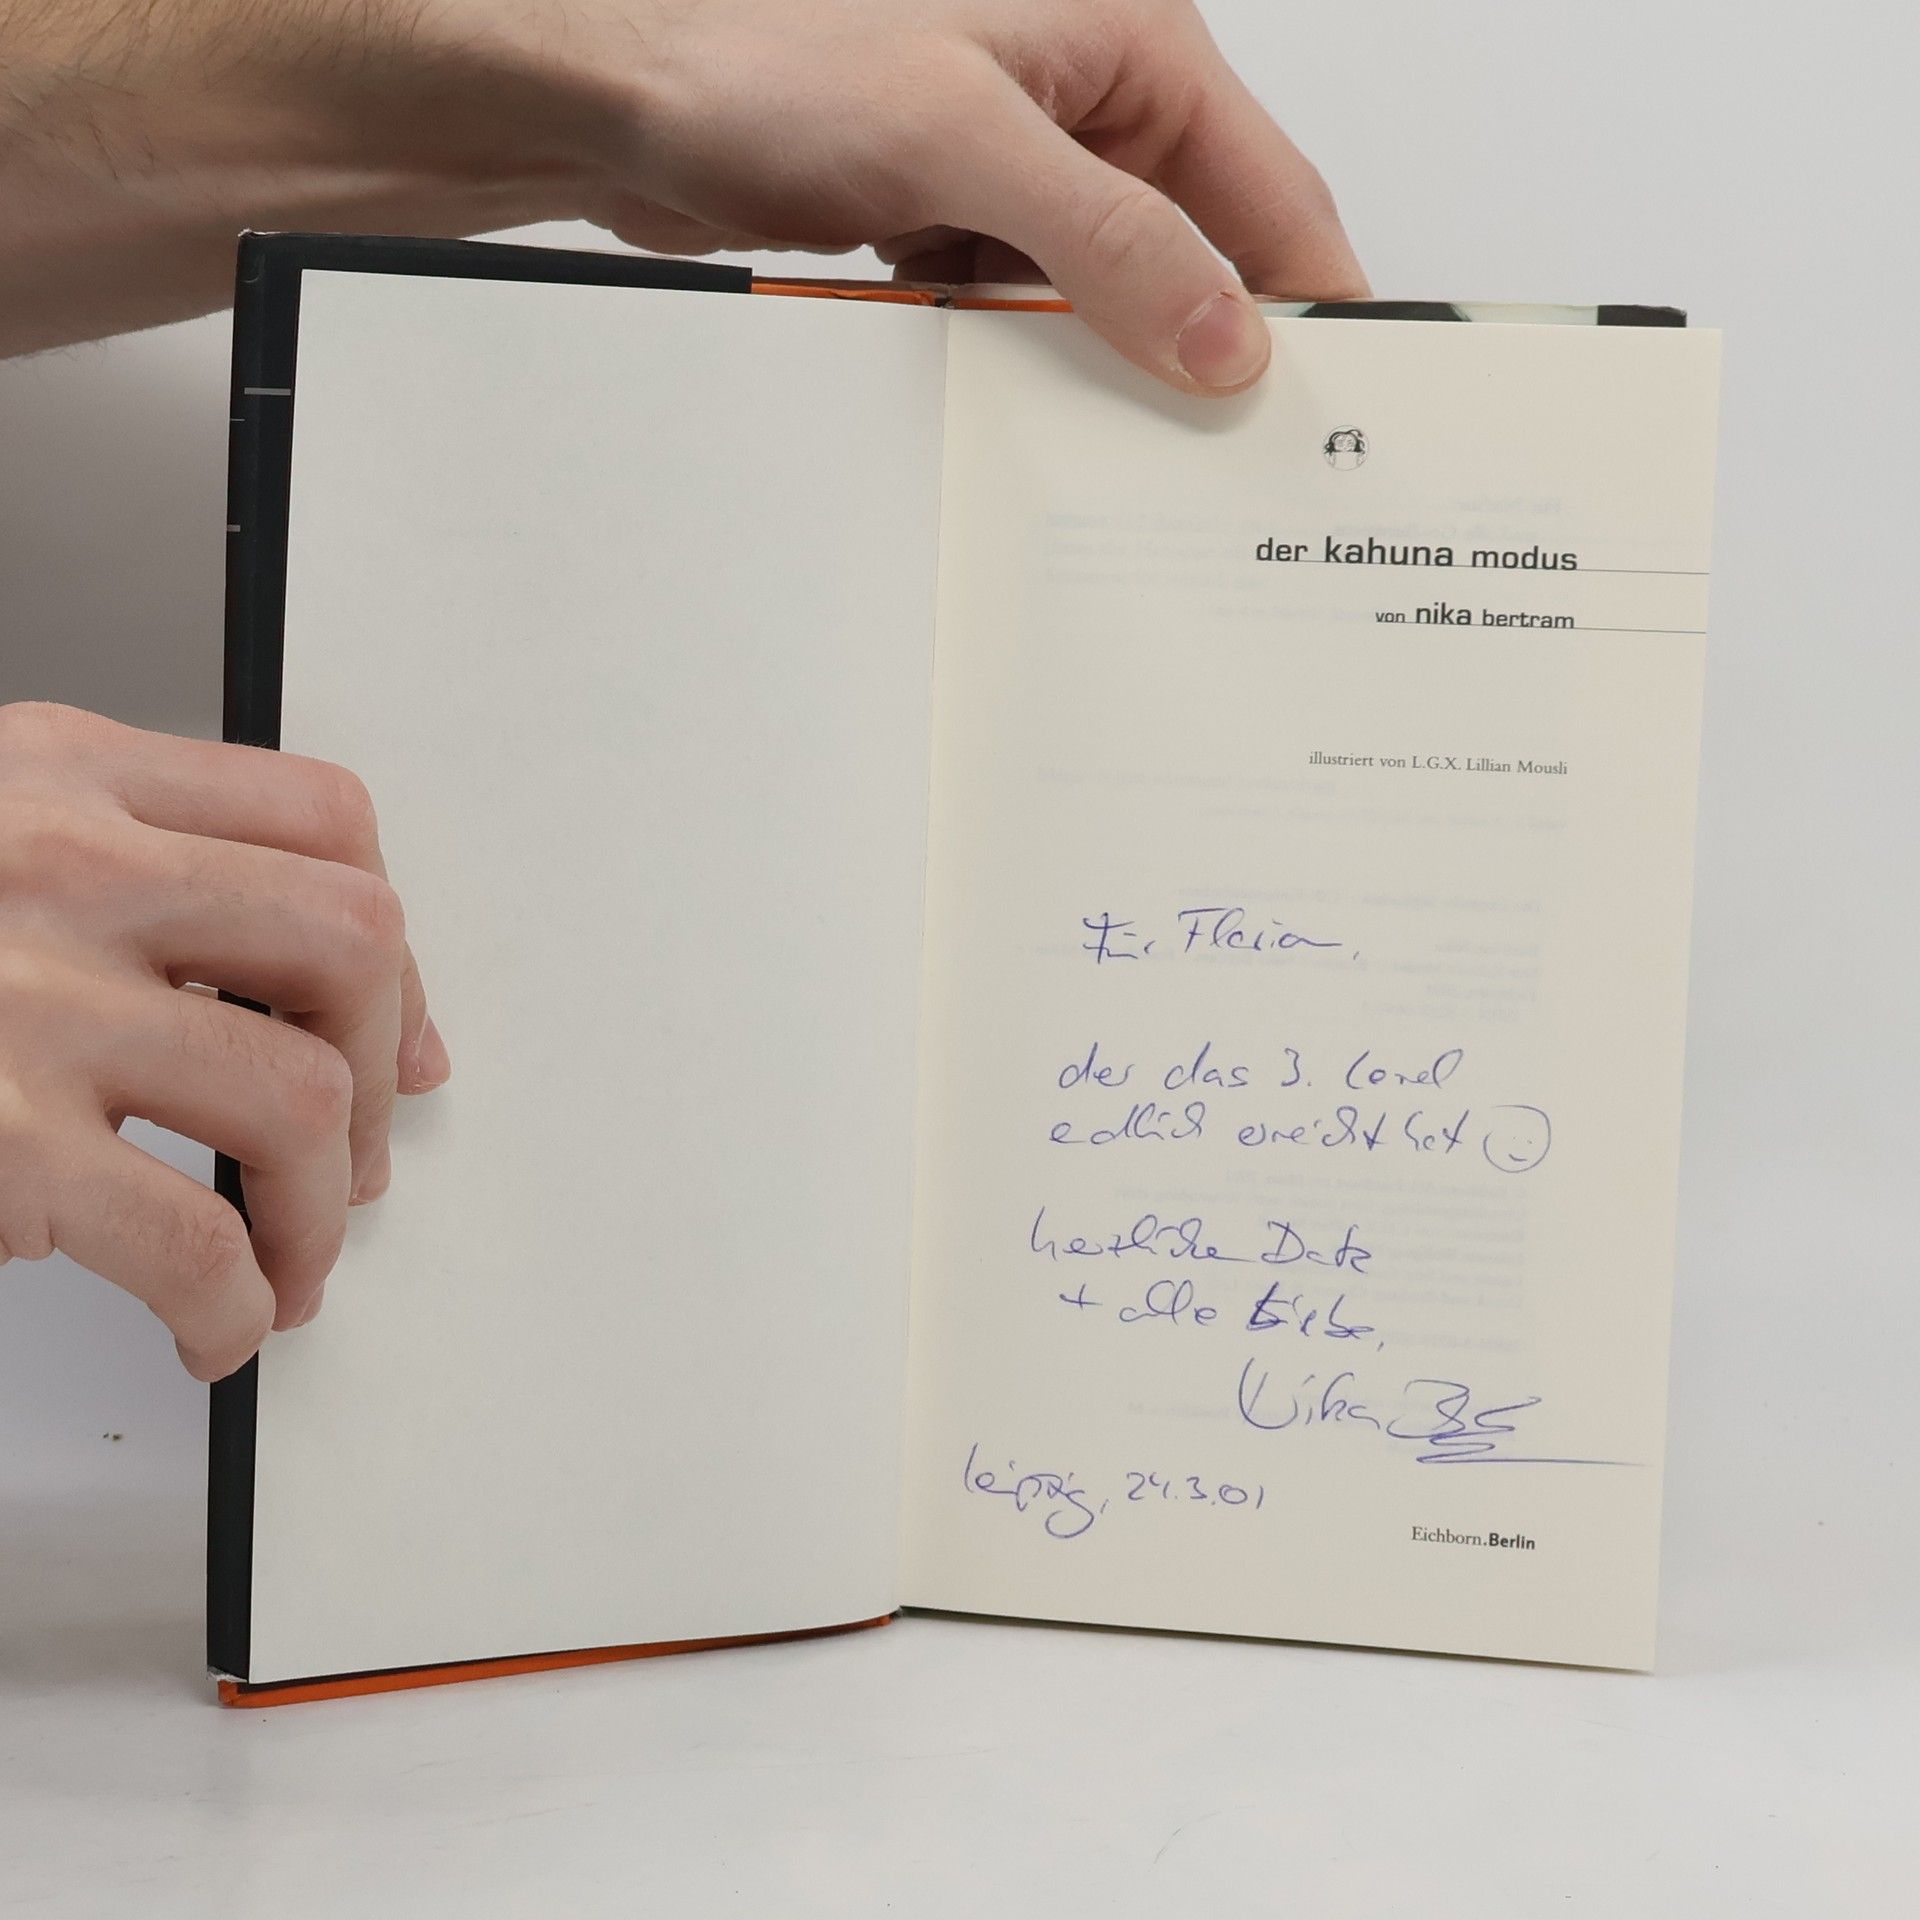 der kahuna modus
von nika bertram
illustriert von L.G.X. Lillian Mousli
Für Florian,
der das 3. Level
endlich erreicht hat
herzlichen Dank
+ alle Liebe,
Nika
Leipzig, 24.3.01
Eichborn.Berlin